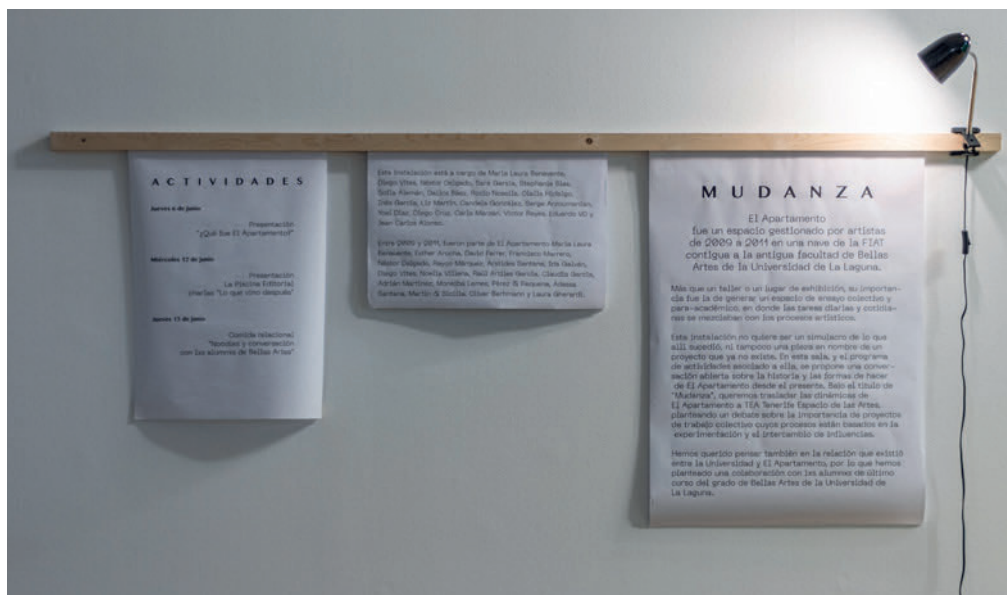 ACTIVIDADES
Jueves 6 de junio
Presentación
"¿Qué fue El Apartamento?"
Miércoles 12 de junio
Presentación
La Piscina Editorial
charlas "Lo que vino después"
Jueves 13 de junio
Comida relacional
"Noodles y conversación
con los alumnos de Bellas Artes"
Esta instalación está a cargo de María Laura Benavente,
Diego Vites, Néstor Delgado, Sara García, Stephanie
Sofía Alemán, Rocío Olalla Hidalgo,
Inés García, Liz Martín, Candela González, Serge
Yoel Díaz, Diego Cruz, Carla Víctor Reyes, Eduardo y
Juan Carlos Alonso.
Entre 2009 y 2011, fueron parte de El Apartamento María Laura
Benavente, Esther David Ferrer, Francisco Marrero,
Néstor Delgado, Moisés Santana, Iris Galván,
Diego Vites, Noelia Villena, Raúl Artiles García, Claudia García,
Adrián Martínez, Lemes, Pérez & Requena,
Santana, Martín & Sicilia, Oliver Behrmann y Laura Gherardi.
MUDANZA
El Apartamento
fue un espacio gestionado por artistas
de 2009 a 2011 en una nave de la FIAT
contigua a la antigua facultad de Bellas
Artes de la Universidad de La Laguna.
Más que un taller o un lugar de exhibición, su importan-
cia fue la de generar un espacio de ensayo colectivo y
para-académico, en donde las tareas diarias y cotidia-
nas se mezclaban con los procesos artísticos.
Esta instalación no quiere ser un simulacro de lo que
allí sucedió, ni tampoco una pieza en nombre de un
proyecto que ya no existe. En esta sala, y el programa
de actividades asociado a ella, se propone una conver-
sación abierta sobre la historia y las formas de hacer
de El Apartamento desde el presente. Bajo el título de
"Mudanza", queremos trasladar las dinámicas de
El Apartamento a TEA Tenerife Espacio de las Artes,
planteando un debate sobre la importancia de proyectos
de trabajo colectivo cuyos procesos están basados en la
experimentación y el intercambio de influencias.
Hemos querido pensar también en la relación que existió
entre la Universidad y El Apartamento, por lo que hemos
planteado una colaboración con los alumnos de último
curso del grado de Bellas Artes de la Universidad de
La Laguna.